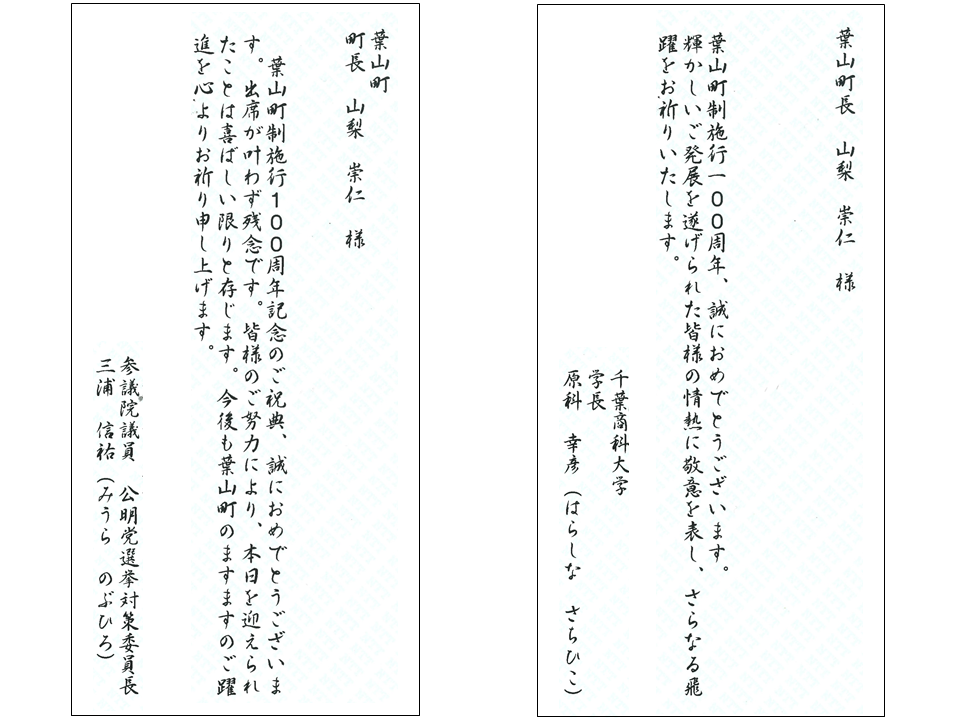 葉山町長　山梨　崇仁　様
葉山町制施行一００周年、誠におめでとうございます。
輝かしいご発展を遂げられた皆様の情熱に敬意を表し、さらなる飛
躍をお祈りいたします。
千葉商科大学
学長
原科　幸彦（はらしな　さちひこ）
葉山町
町長　山梨　崇仁　様
葉山町制施行１００周年記念のご祝典、誠におめでとうございま
す。出席が叶わず残念です。皆様のご努力により、本日を迎えられ
たことは喜ばしい限りと存じます。今後も葉山町のますますのご躍
進を心よりお祈り申し上げます。
参議院議員　公明党選挙対策委員長
三浦　信祐（みうら　のぶひろ）